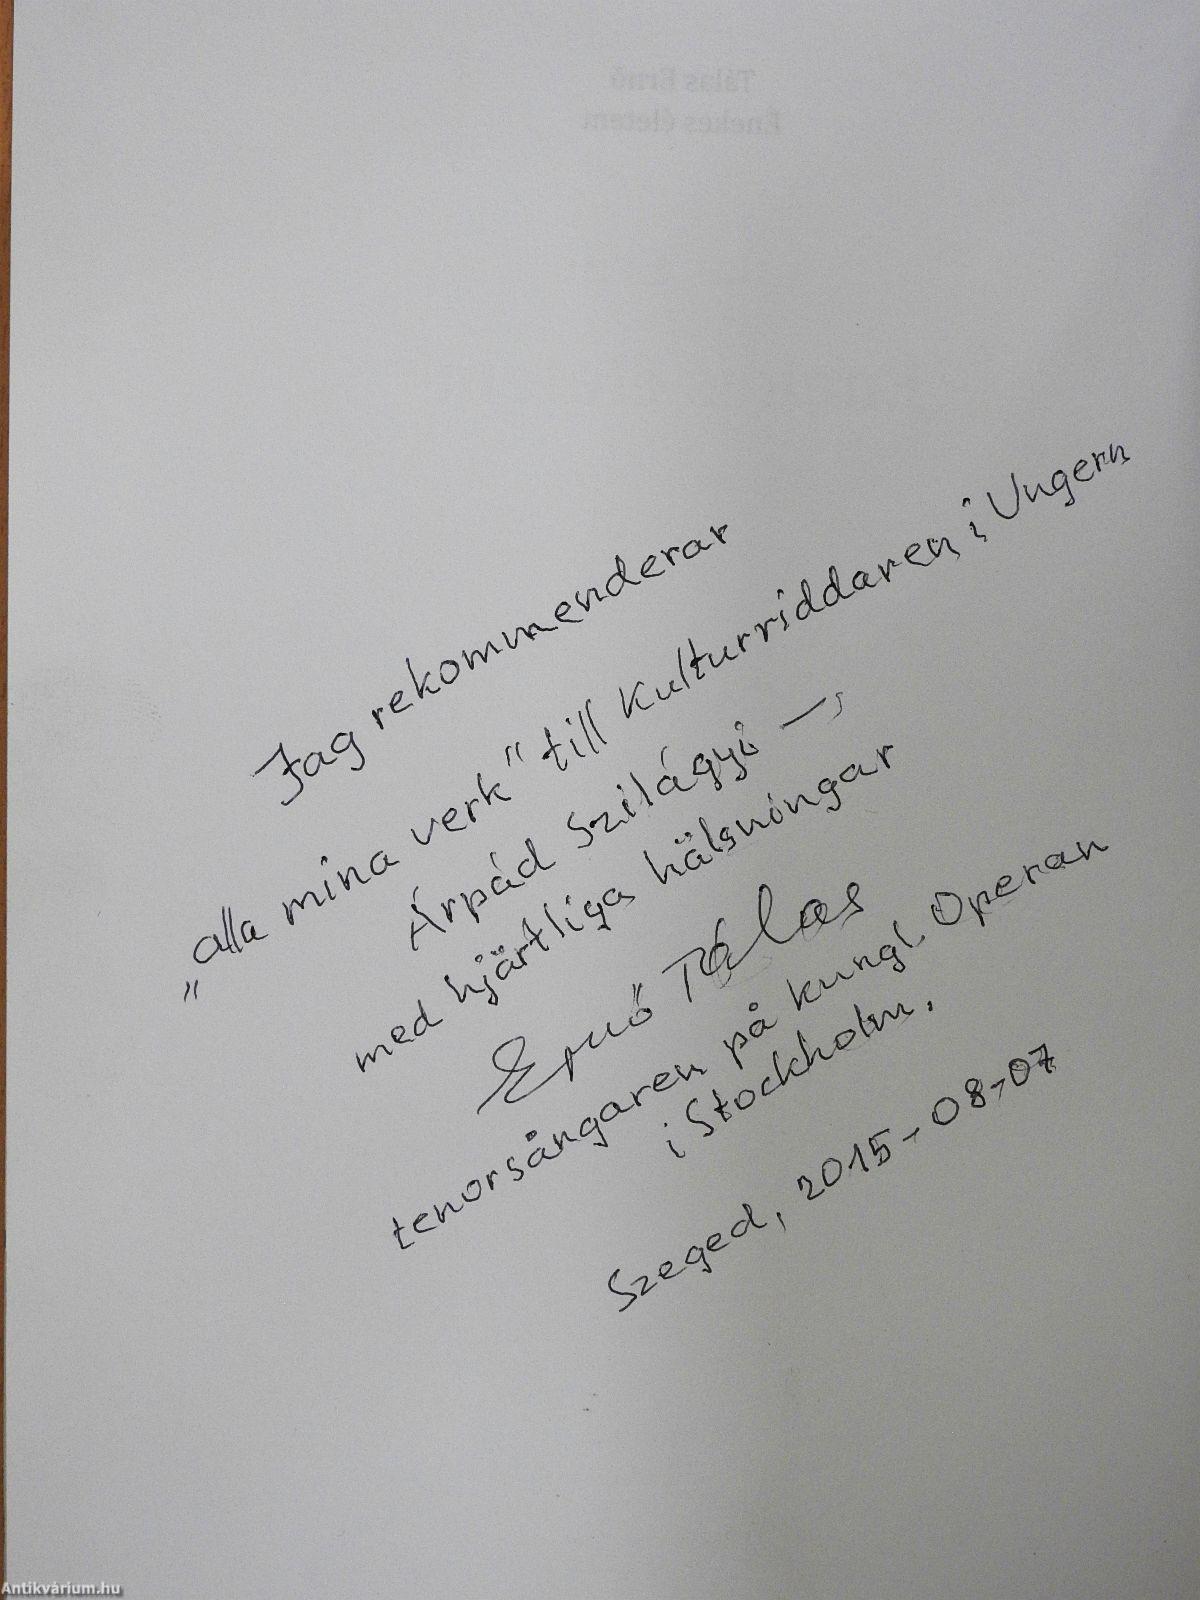 Tálas Ernő
Énekes életem
Jag rekommenderar
„alla mina verk" till Kulturriddaren i Ungern
Árpád Szilágyi —,
med hjärtliga hälsningar
Ernő Tálas
tenorsångaren på kungl. Operan
i Stockholm.
Szeged, 2015-08-07
Antikvárium.hu